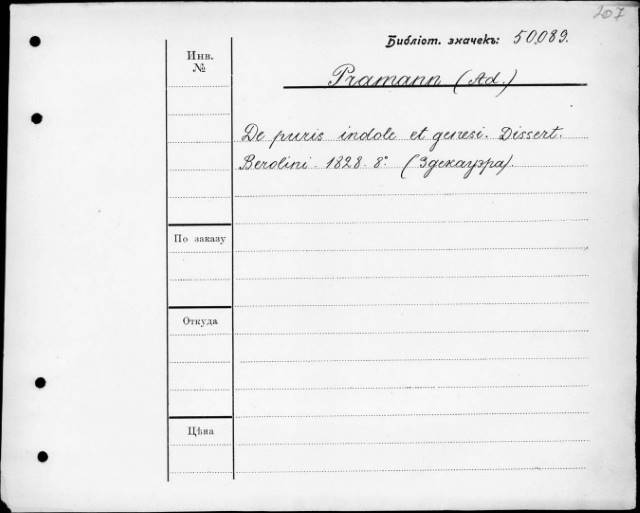 207
Библіот. значекъ: 50089.
Инв.
№
Pramann (Ad.)
De puris indole et genesi. Dissert.
Berolini. 1828. 8°. (Здекауэра).
По заказу
Откуда
Цѣна